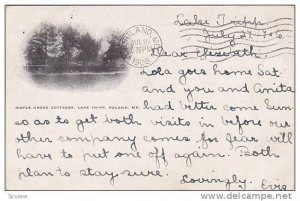 Lake Tripp
July 27, 1906.
Dear Elizabeth:
Lola goes home Sat.
and you and Anita
had better come Sun.
so as to get both visits in before our
other company comes for fear will
have to put one off again. Both
plan to stay sure.
Lovingly, Evis
MAPLE GROVE COTTAGES, LAKE TRIPP, POLAND, ME.
POLAND, ME.
1906
HIPPOSTCARD